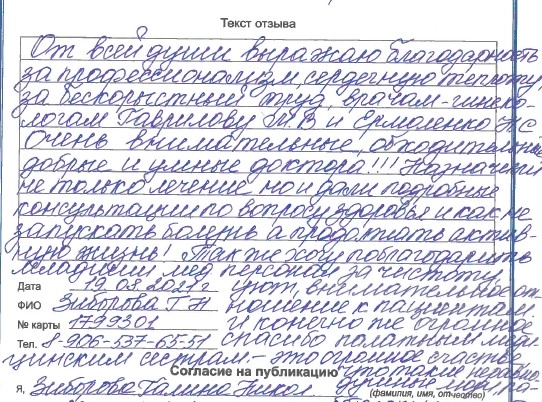 Текст отзыва
От всей души выражаю благодарность
за профессионализм, сердечную теплоту,
за бескорыстный труд, врачам-гинеко-
логам Гаврилову М.В и Ермоленко Н С
Очень внимательные, обходительные
добрые и умные доктора!!! Назначили
не только лечение но и дали подробные
консультации по вопросу здоровья и как не
запускать болезнь а продолжать актив-
ную жизнь! Так же хочу поблагодарить
младший мед персонал за чистоту
Дата 19.08.2021г уют, внимательное от-
ФИО Зиборова Г Н ношение к пациентам.
№ карты 1799301 и конечно же огромное
Тел. 8-906-537-65-51 спасибо палатным меди
цинским сестрам. - это огромное счастье
Согласие на публикацию что такие неравно-
Я, Зиборова Галина Никол душные
(фамилия, имя, отчество)